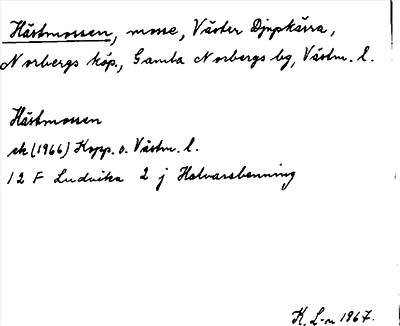 Hästmossen, mosse, Väster Djupkärra,
Norbergs köp., Gamla Norbergs bg, Västm. l.
Hästmossen
ek (1966) Kopp. o. Västm. l.
12 F Ludvika 2 j Halvarsbenning
K. L-n 1967.